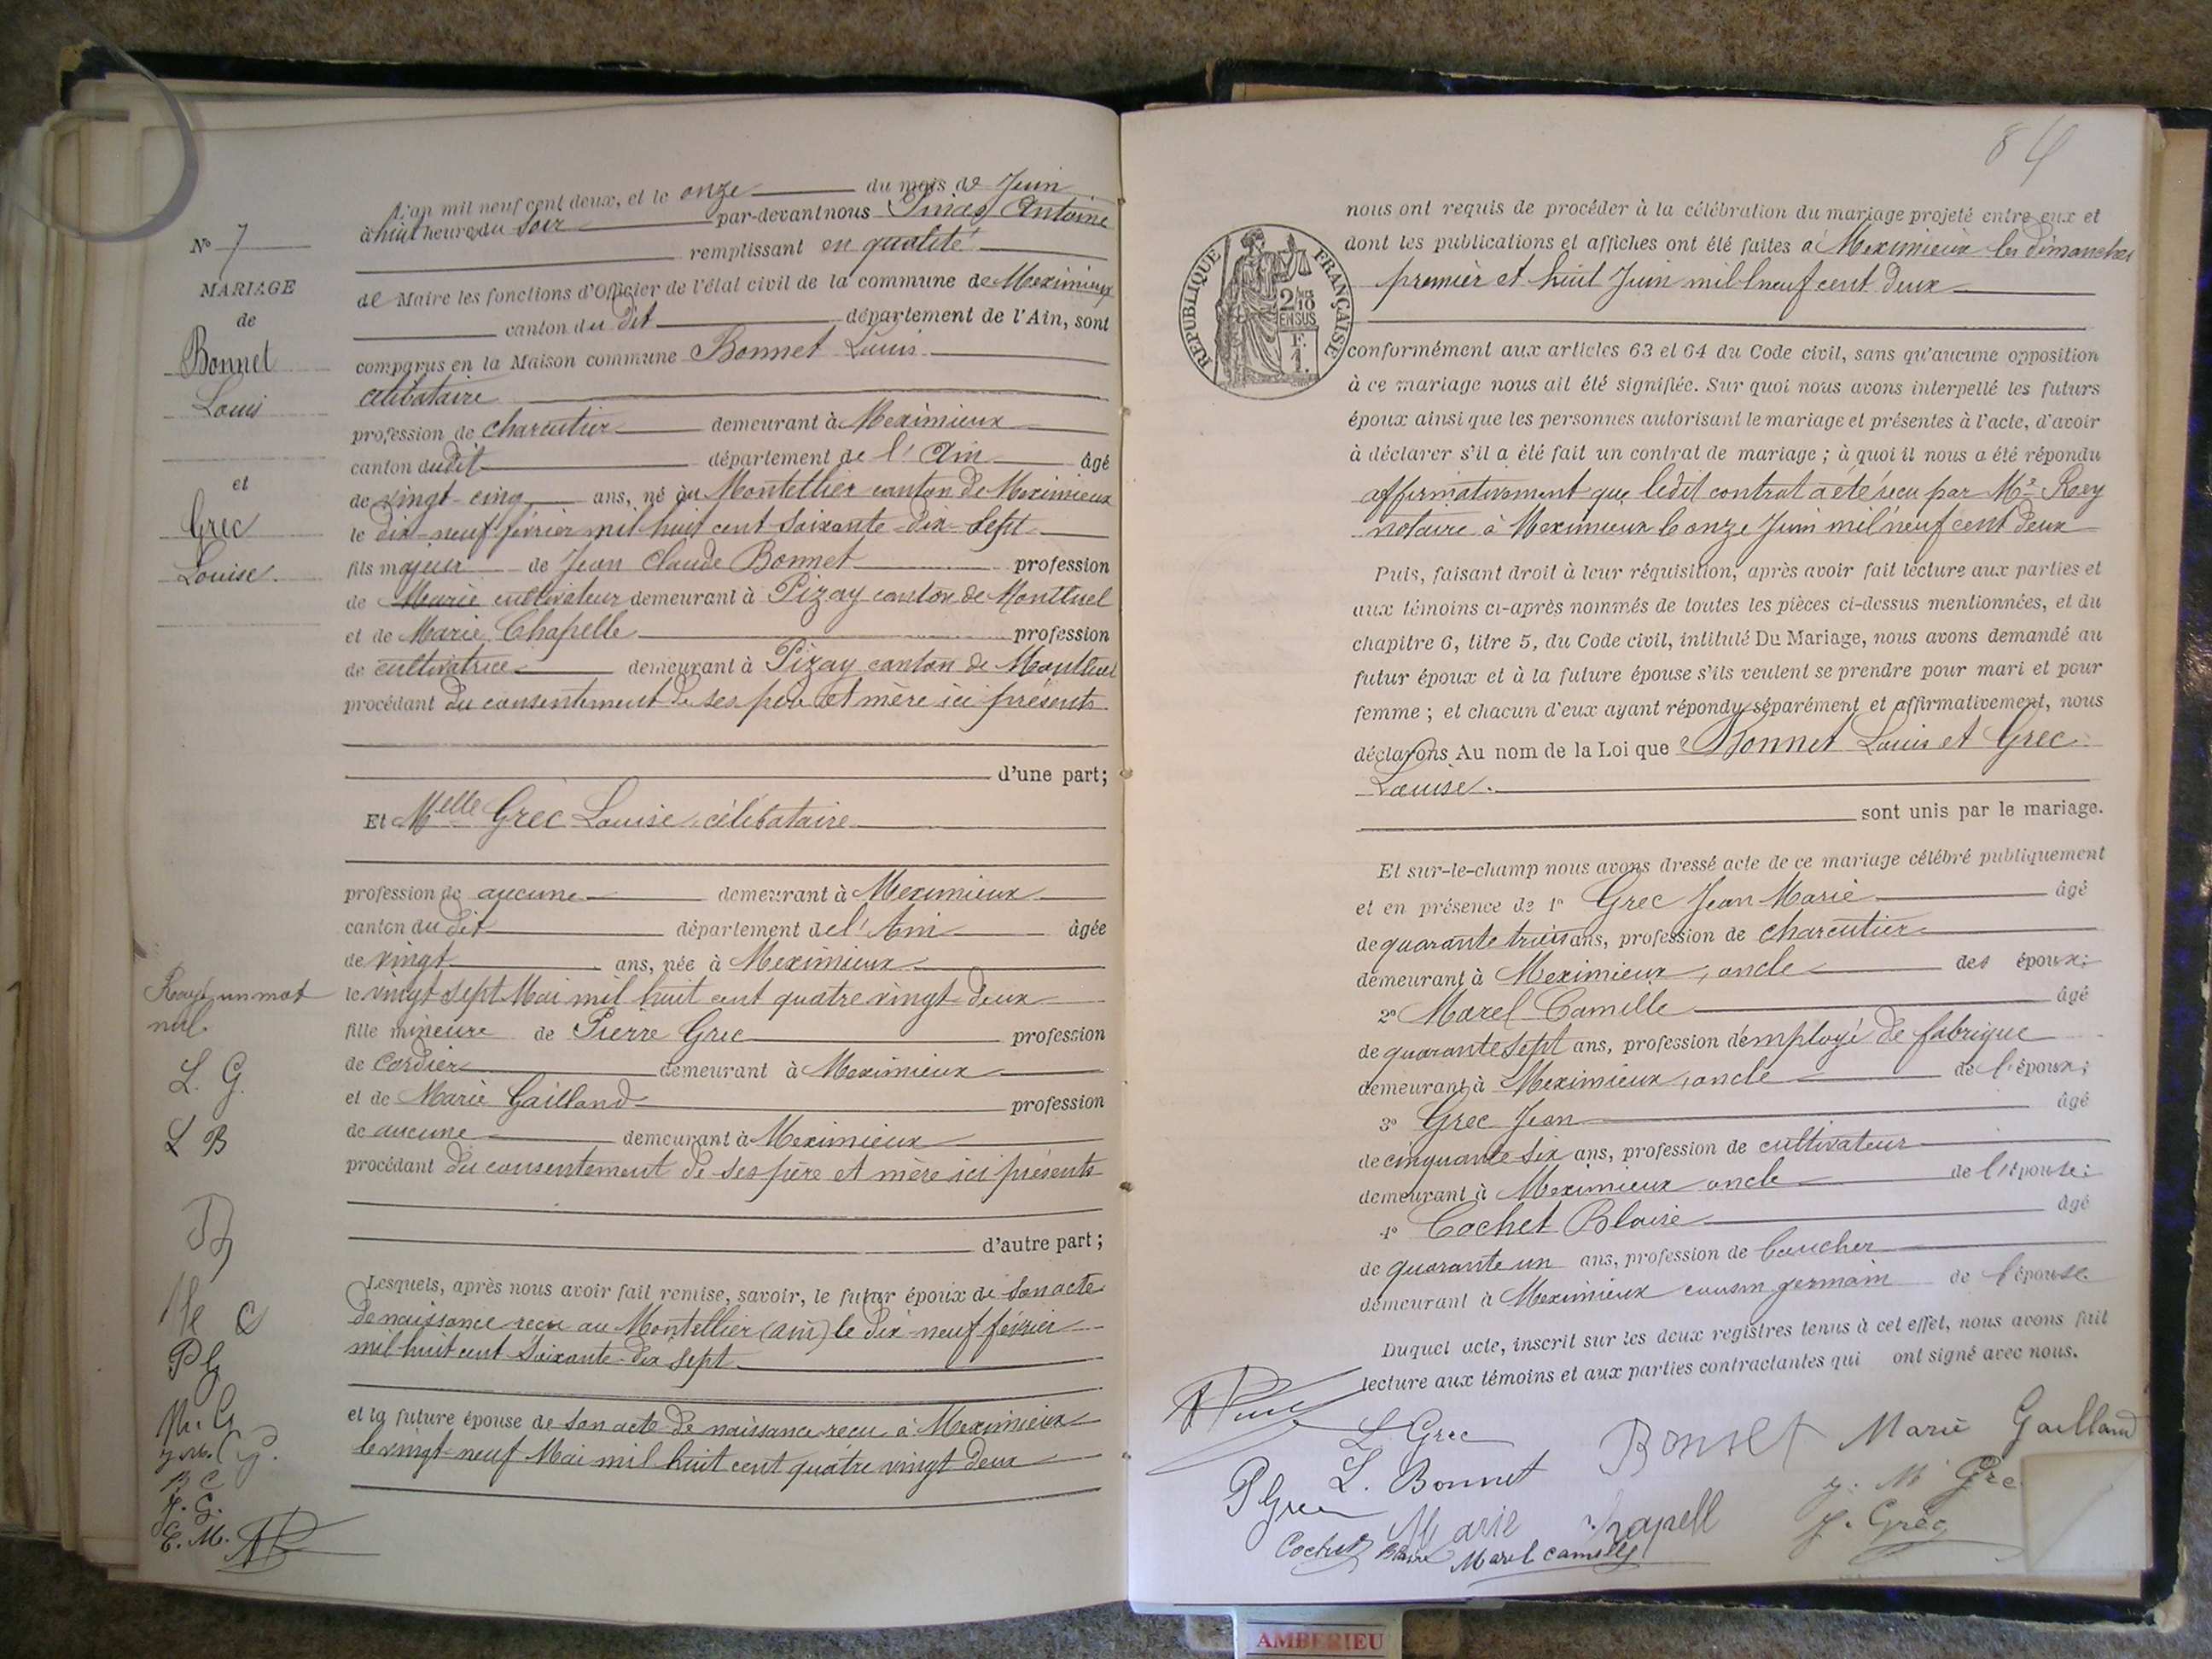 N° 7
MARIAGE
de
Bonnet
Louis
et
Grec
Louise.
Rayé un mot
nul.
L. G.
L B
M C
P G
M. G
J. M. G.
B C
J. G.
C. M.
L'an mil neuf cent deux, et le onze du mois de Juin
à huit heures du soir par-devant nous Antoine
remplissant en qualité
de Maire les fonctions d'Officier de l'état civil de la commune de Meximieux
canton du dit département de l'Ain, sont
comparus en la Maison commune Bonnet Louis
célibataire
profession de charcutier demeurant à Meximieux
canton dudit département de l'Ain âgé
de vingt-cinq ans, né au Montellier canton de Meximieux
le dix-neuf février mil huit cent soixante-dix-sept
fils majeur de Jean Claude Bonnet profession
de Marie cultivateur demeurant à Pizay canton de Montluel
et de Marie Chapelle profession
de cultivatrice demeurant à Pizay canton de Montluel
procédant du consentement de ses père et mère ici présents
d'une part;
Et Melle Grec Louise célibataire
profession de aucune demeurant à Meximieux
canton du dit département de l'Ain âgée
de vingt ans, née à Meximieux
le vingt sept Mai mil huit cent quatre vingt deux
fille mineure de Pierre Grec profession
de Cordier demeurant à Meximieux
et de Marie Gailland profession
de aucune demeurant à Meximieux
procédant du consentement de ses père et mère ici présents
d'autre part;
Lesquels, après nous avoir fait remise, savoir, le futur époux de son acte
de naissance reçu au Montellier (ain) le dix-neuf février
mil huit cent soixante-dix sept
et la future épouse de son acte de naissance reçu à Meximieux
le vingt-neuf Mai mil huit cent quatre vingt deux
84
REPUBLIQUE FRANÇAISE
2/10 EN SUS
F.
1.
nous ont requis de procéder à la célébration du mariage projeté entre eux et
dont les publications et affiches ont été faites à Meximieux les dimanches
premier et huit Juin mil neuf cent deux
conformément aux articles 63 et 64 du Code civil, sans qu'aucune opposition
à ce mariage nous ait été signifiée. Sur quoi nous avons interpellé les futurs
époux ainsi que les personnes autorisant le mariage et présentes à l'acte, d'avoir
à déclarer s'il a été fait un contrat de mariage ; à quoi il nous a été répondu
affirmativement que ledit contrat a été reçu par Me Rey
notaire à Meximieux le onze Juin mil neuf cent deux
Puis, faisant droit à leur réquisition, après avoir fait lecture aux parties et
aux témoins ci-après nommés de toutes les pièces ci-dessus mentionnées, et du
chapitre 6, titre 5, du Code civil, intitulé Du Mariage, nous avons demandé au
futur époux et à la future épouse s'ils veulent se prendre pour mari et pour
femme ; et chacun d'eux ayant répondu séparément et affirmativement, nous
déclarons Au nom de la Loi que Bonnet Louis et Grec
Louise.
sont unis par le mariage.
Et sur-le-champ nous avons dressé acte de ce mariage célébré publiquement
et en présence de 1° Grec Jean Marie âgé
de quarante trois ans, profession de charcutier
demeurant à Meximieux, oncle des époux;
2° Marel Camille âgé
de quarante sept ans, profession d'employé de fabrique
demeurant à Meximieux, oncle de l'époux;
3° Grec Jean âgé
de cinquante six ans, profession de cultivateur
demeurant à Meximieux oncle de l'épouse;
4° Cochet Blaise âgé
de quarante un ans, profession de boucher
demeurant à Meximieux cousin germain de l'épouse.
Duquel acte, inscrit sur les deux registres tenus à cet effet, nous avons fait
lecture aux témoins et aux parties contractantes qui ont signé avec nous.
L. Grec
Bonnet
Marie Gailland
L. Bonnet
P Grec
J. M Gre
Marie Chapell
J. Grec
Cochet Blaise
Marel Camille
AMBERIEU